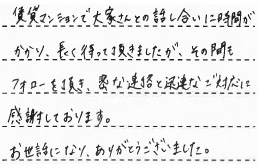 賃貸マンションで大家さんとの話し合いに時間が
かかり、長く待って頂きましたが、その間も
フォローを頂き、密な連絡と迅速なご対応に
感謝しております。
お世話になり、ありがとうございました。